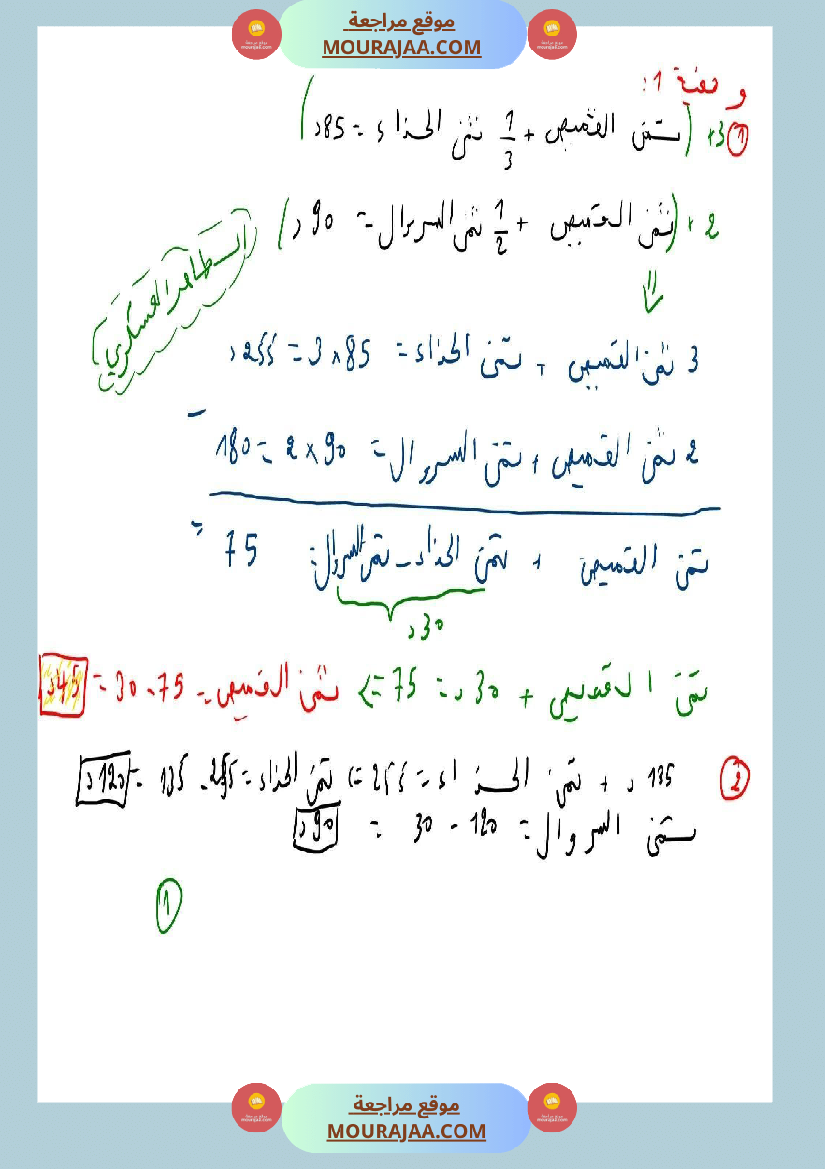 موقع مراجعة
MOURAJAA.COM
وضعية 1:
① 3× (ثمن القميص + 1/3 ثمن الحذاء = 85د)
2 × (ثمن القميص + 1/2 ثمن السروال = 90 د)
⇓
3 ثمن القميص + ثمن الحذاء = 85×3 = 255د
-
2 ثمن القميص + ثمن السروال = 90 × 2 = 180
ثمن القميص + ثمن الحذاء - ثمن السروال = 75
=
30د
ثمن القميص + 30د = 75 => ثمن القميص = 75-30 = 45د
② 135 د + ثمن الحذاء = 255 => ثمن الحذاء = 255 - 135 = 120د
ثمن السروال = 120 - 30 = 90د
①
موقع مراجعة
MOURAJAA.COM